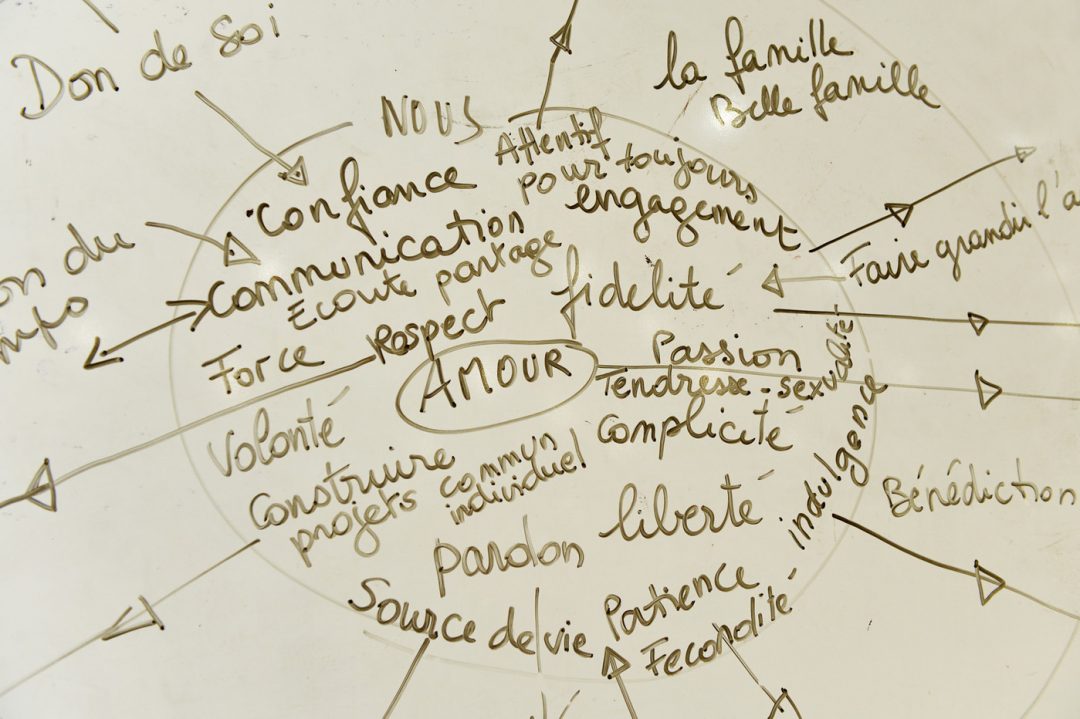 Don de Soi
la famille
Belle famille
NOUS
Attentif
pour toujours
engagement
Confiance
Communication
Ecoute partage
fidélité
Faire grandir l'a
on du
Respect
Force
AMOUR
Passion
Tendresse - sexualité
Complicité
Volonté
Construire
projets commun
individuel
indulgence
Bénédiction
liberté
pardon
Source de vie
Patience
Fecondité